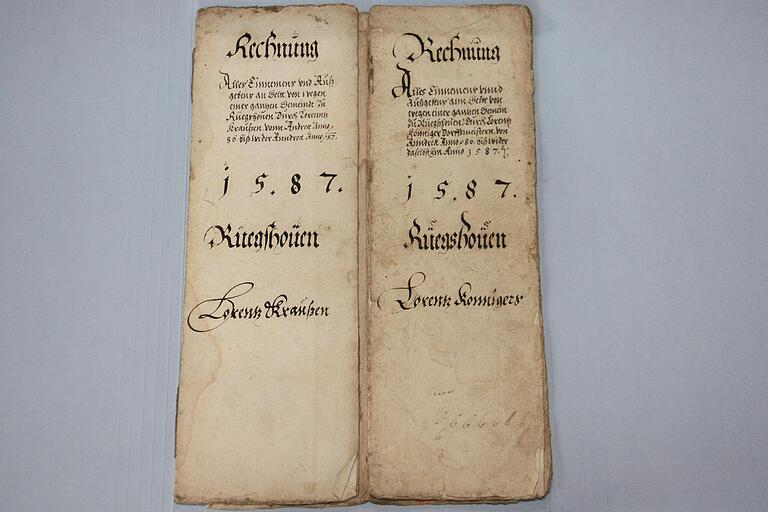 Rechnung
Alles Einnemens vnd Auß-
gebens an Gelt, von wegen
einer gantzen Gemeindt zu
Ruegshouen Durch Lorentz
Kraußen vonn Andreæ Anno
86 biß wider Anndreæ Anno 87.
1 5. 8 7.
Ruegshouen
Lorentz Kraußen
Rechnung
Alles Einnemens vnnd
Außgebens ann Gelt von
wegen einer gantzen Gemein
zu Ruegshouen, Durch Lorentz
Könniger Dorffmeistern von
Anndreæ Anno 86 biß wider
daselbsthin Anno 1587.
1 5. 8 7.
Rüegshouen
Lorentz Konnigers
6 6 6 6 6 6
6